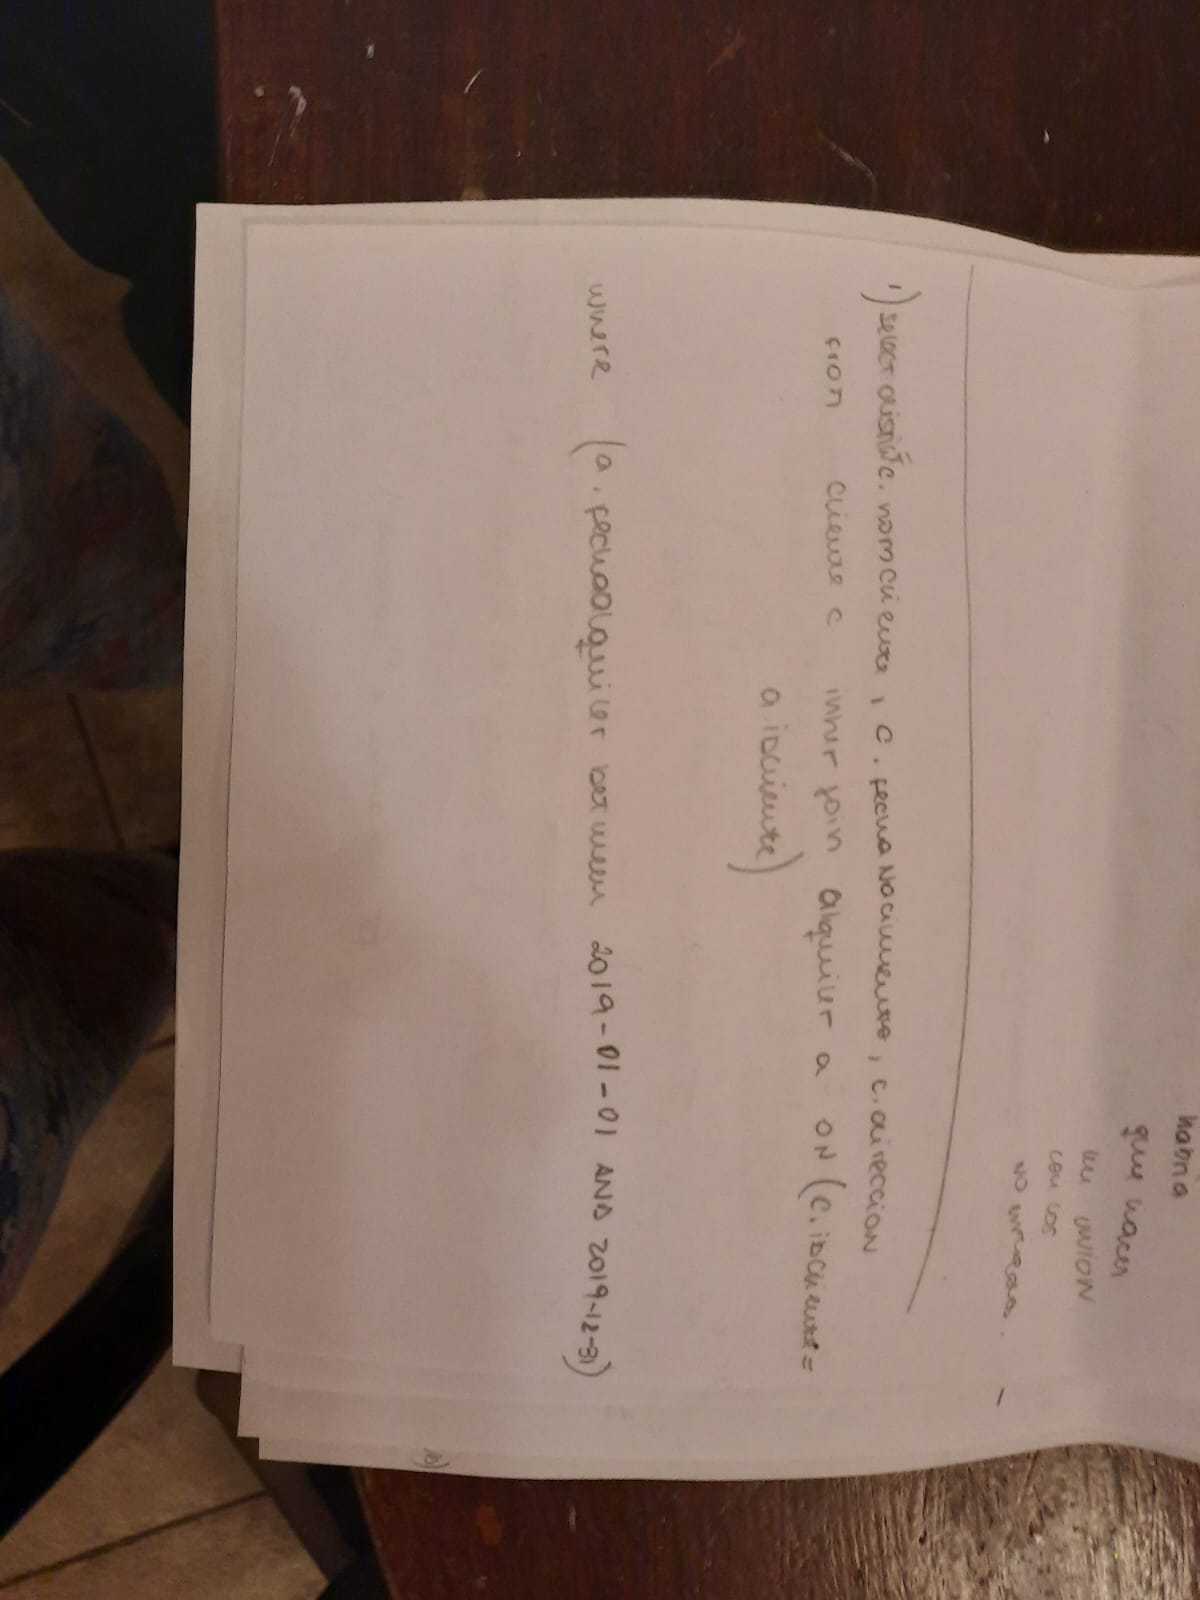 habria
que hacer
un UNION
con los
NO
1) select distinct c. nomCliente, c. fechaNacimiento, c. direccion
from cliente c inner join alquiler a ON (c. idCliente =
a. idCliente)
where (a. fechaAlquiler between 2019-01-01 AND 2019-12-31)
10)